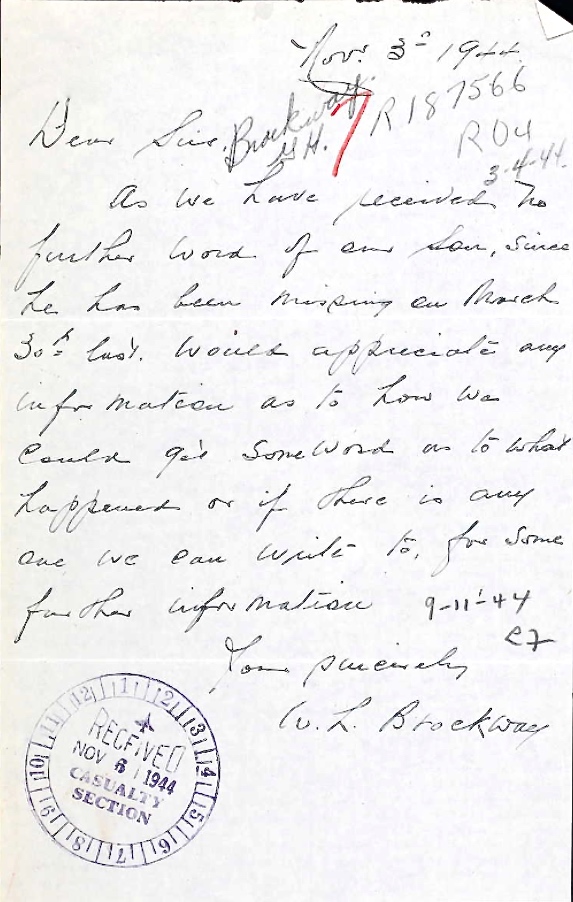 Nov. 3rd 1944.
Dear Sir.
Brockway.
G.H.
7
R187566
R04
3-4-44.
As we have received no
further word of our son, since
he has been missing on March
30th last. Would appreciate any
information as to how we
could get some word as to what
happened or if there is any
one we can write to, for some
further information
9-11-44
Your sincerely
W. L. Brockway
12 1 2 3 4 5 6 7 8 9 10 11
RECEIVED
NOV 6 1944
CASUALTY
SECTION